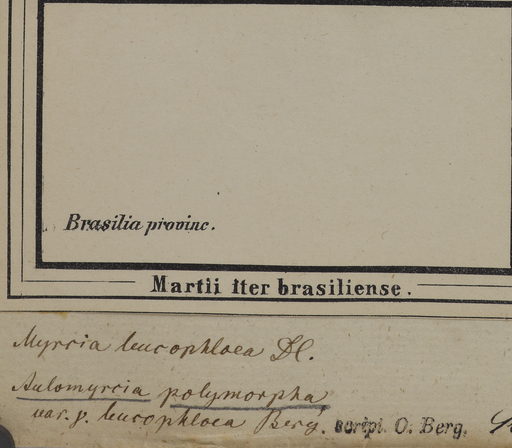 Brasilia provinc.
Martii iter brasiliense.
Myrcia leucophloea DC.
Aulomyrcia polymorpha
var. γ. leucophloea Berg. script. O. Berg.